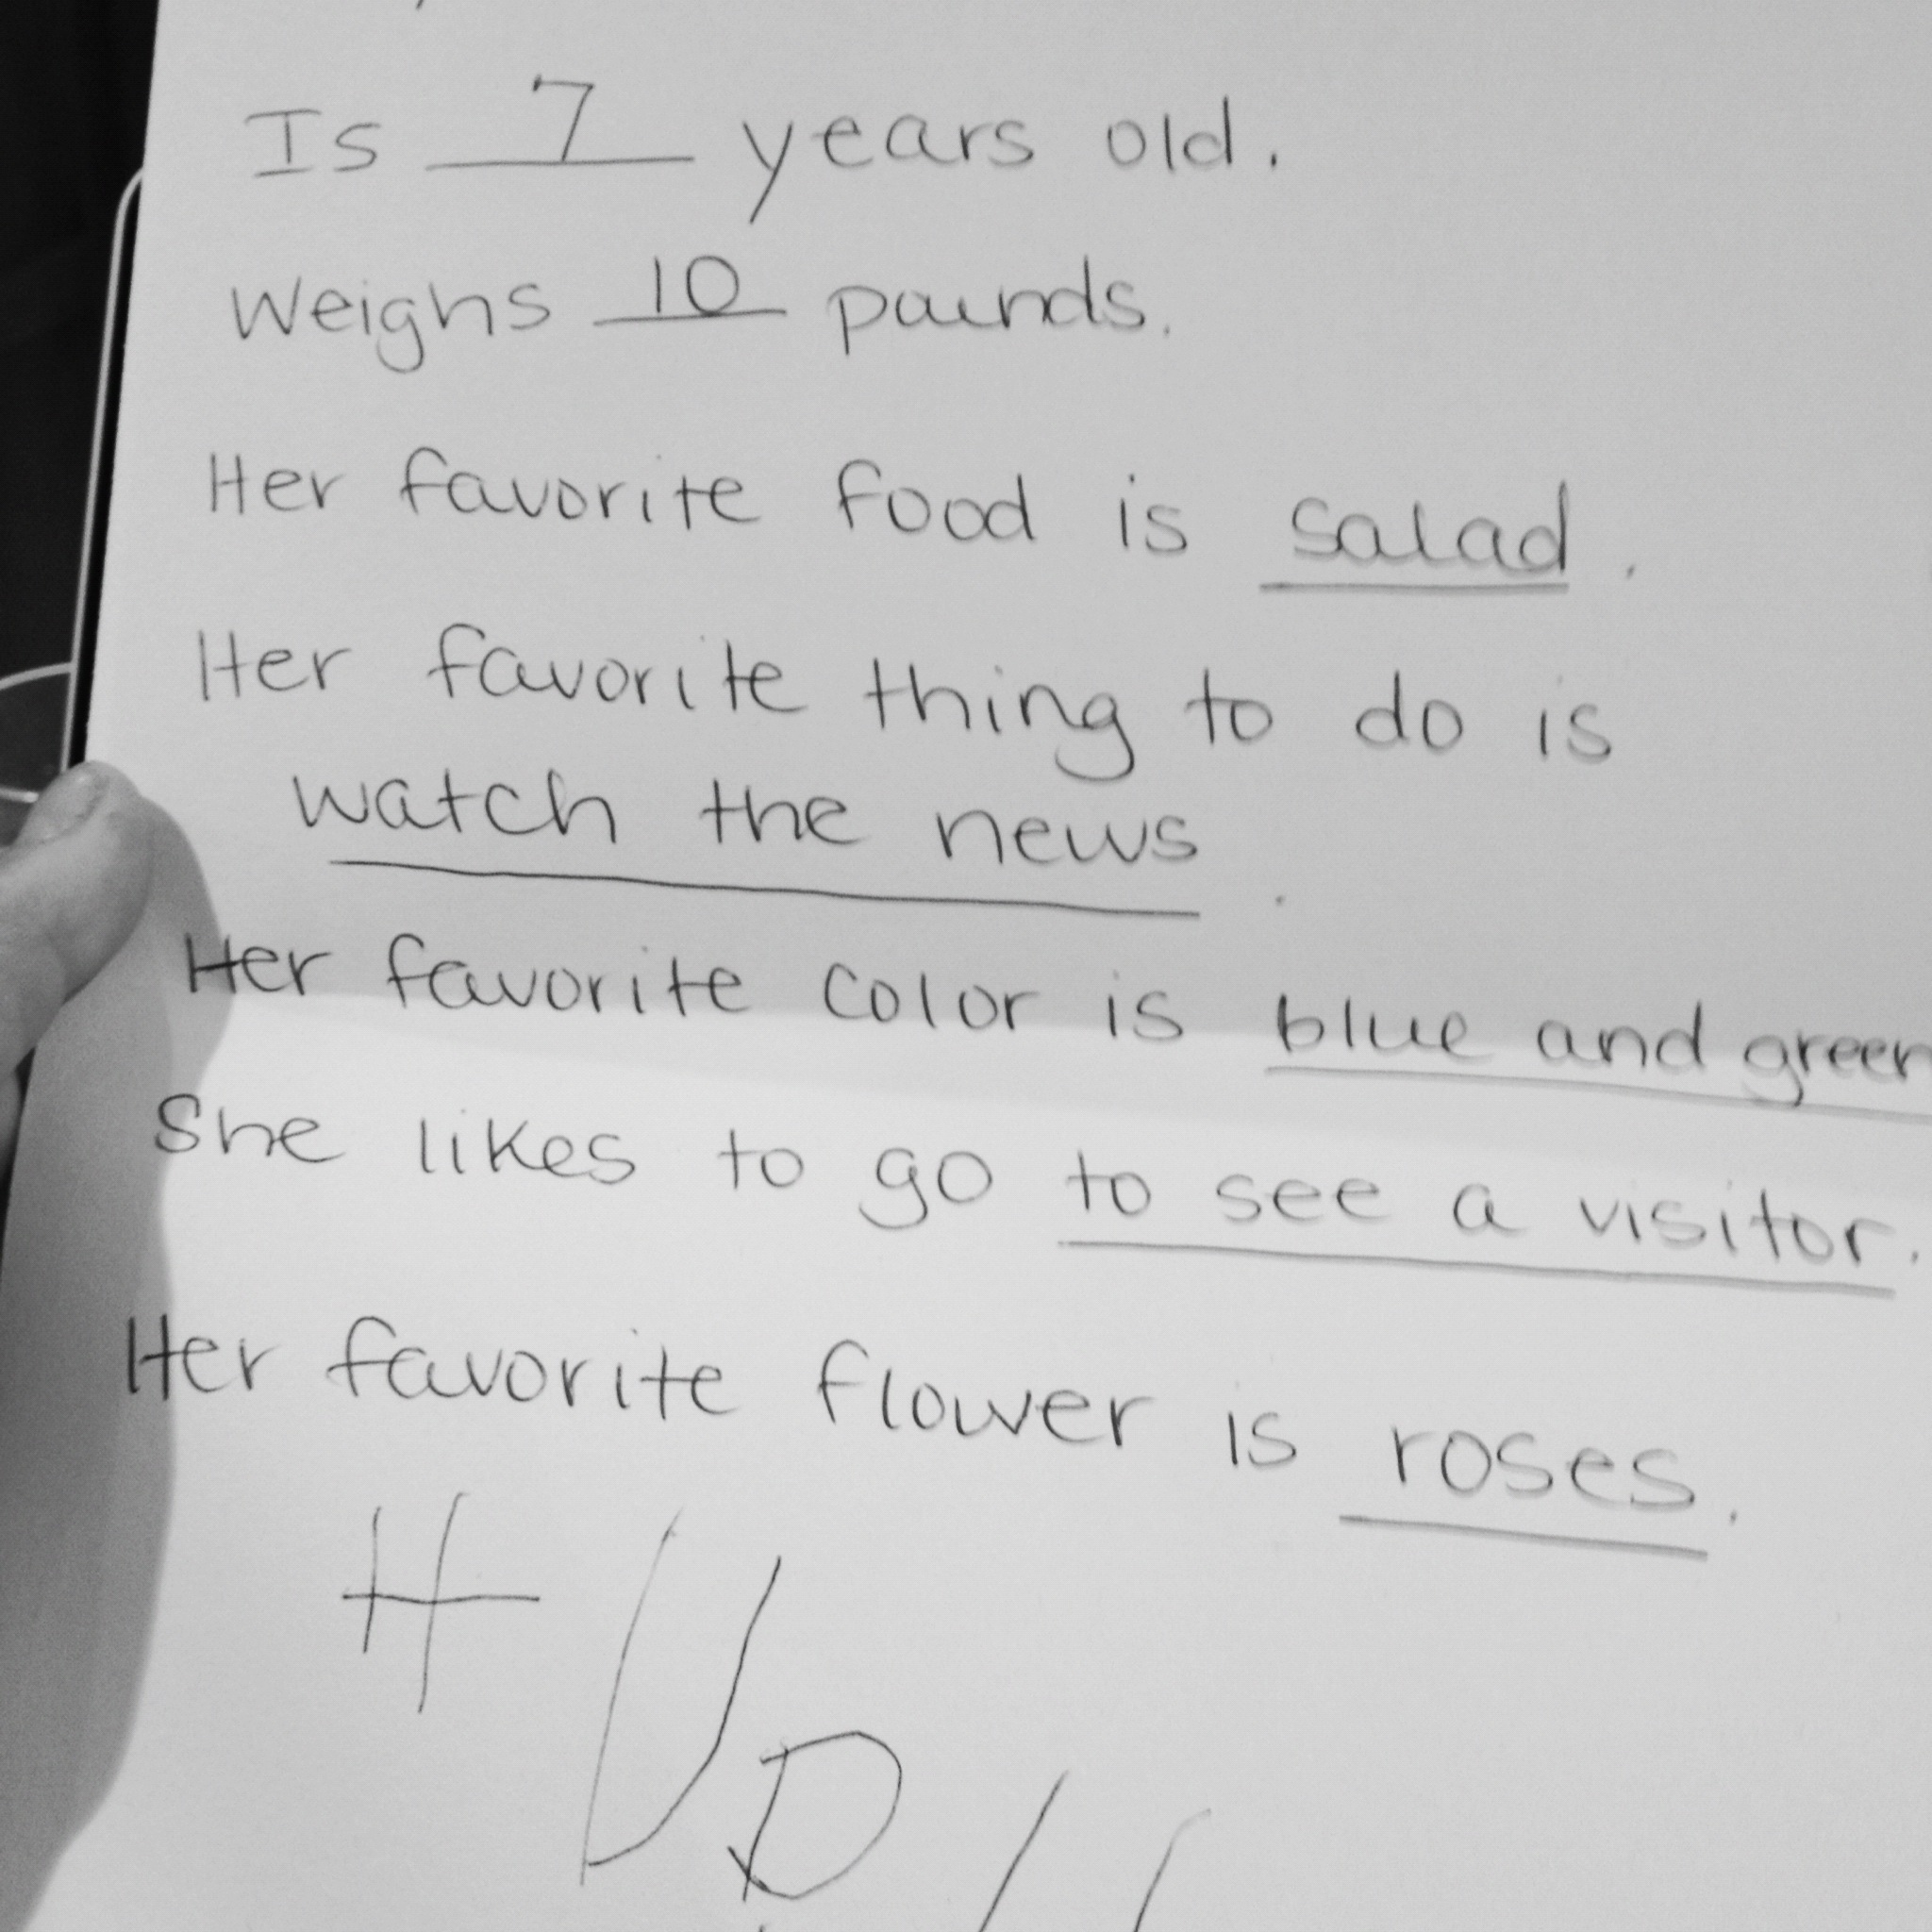 Is 7 years old.
Weighs 10 pounds.
Her favorite food is salad.
Her favorite thing to do is
watch the news.
Her favorite color is blue and green
She likes to go to see a visitor.
Her favorite flower is roses.
H U D